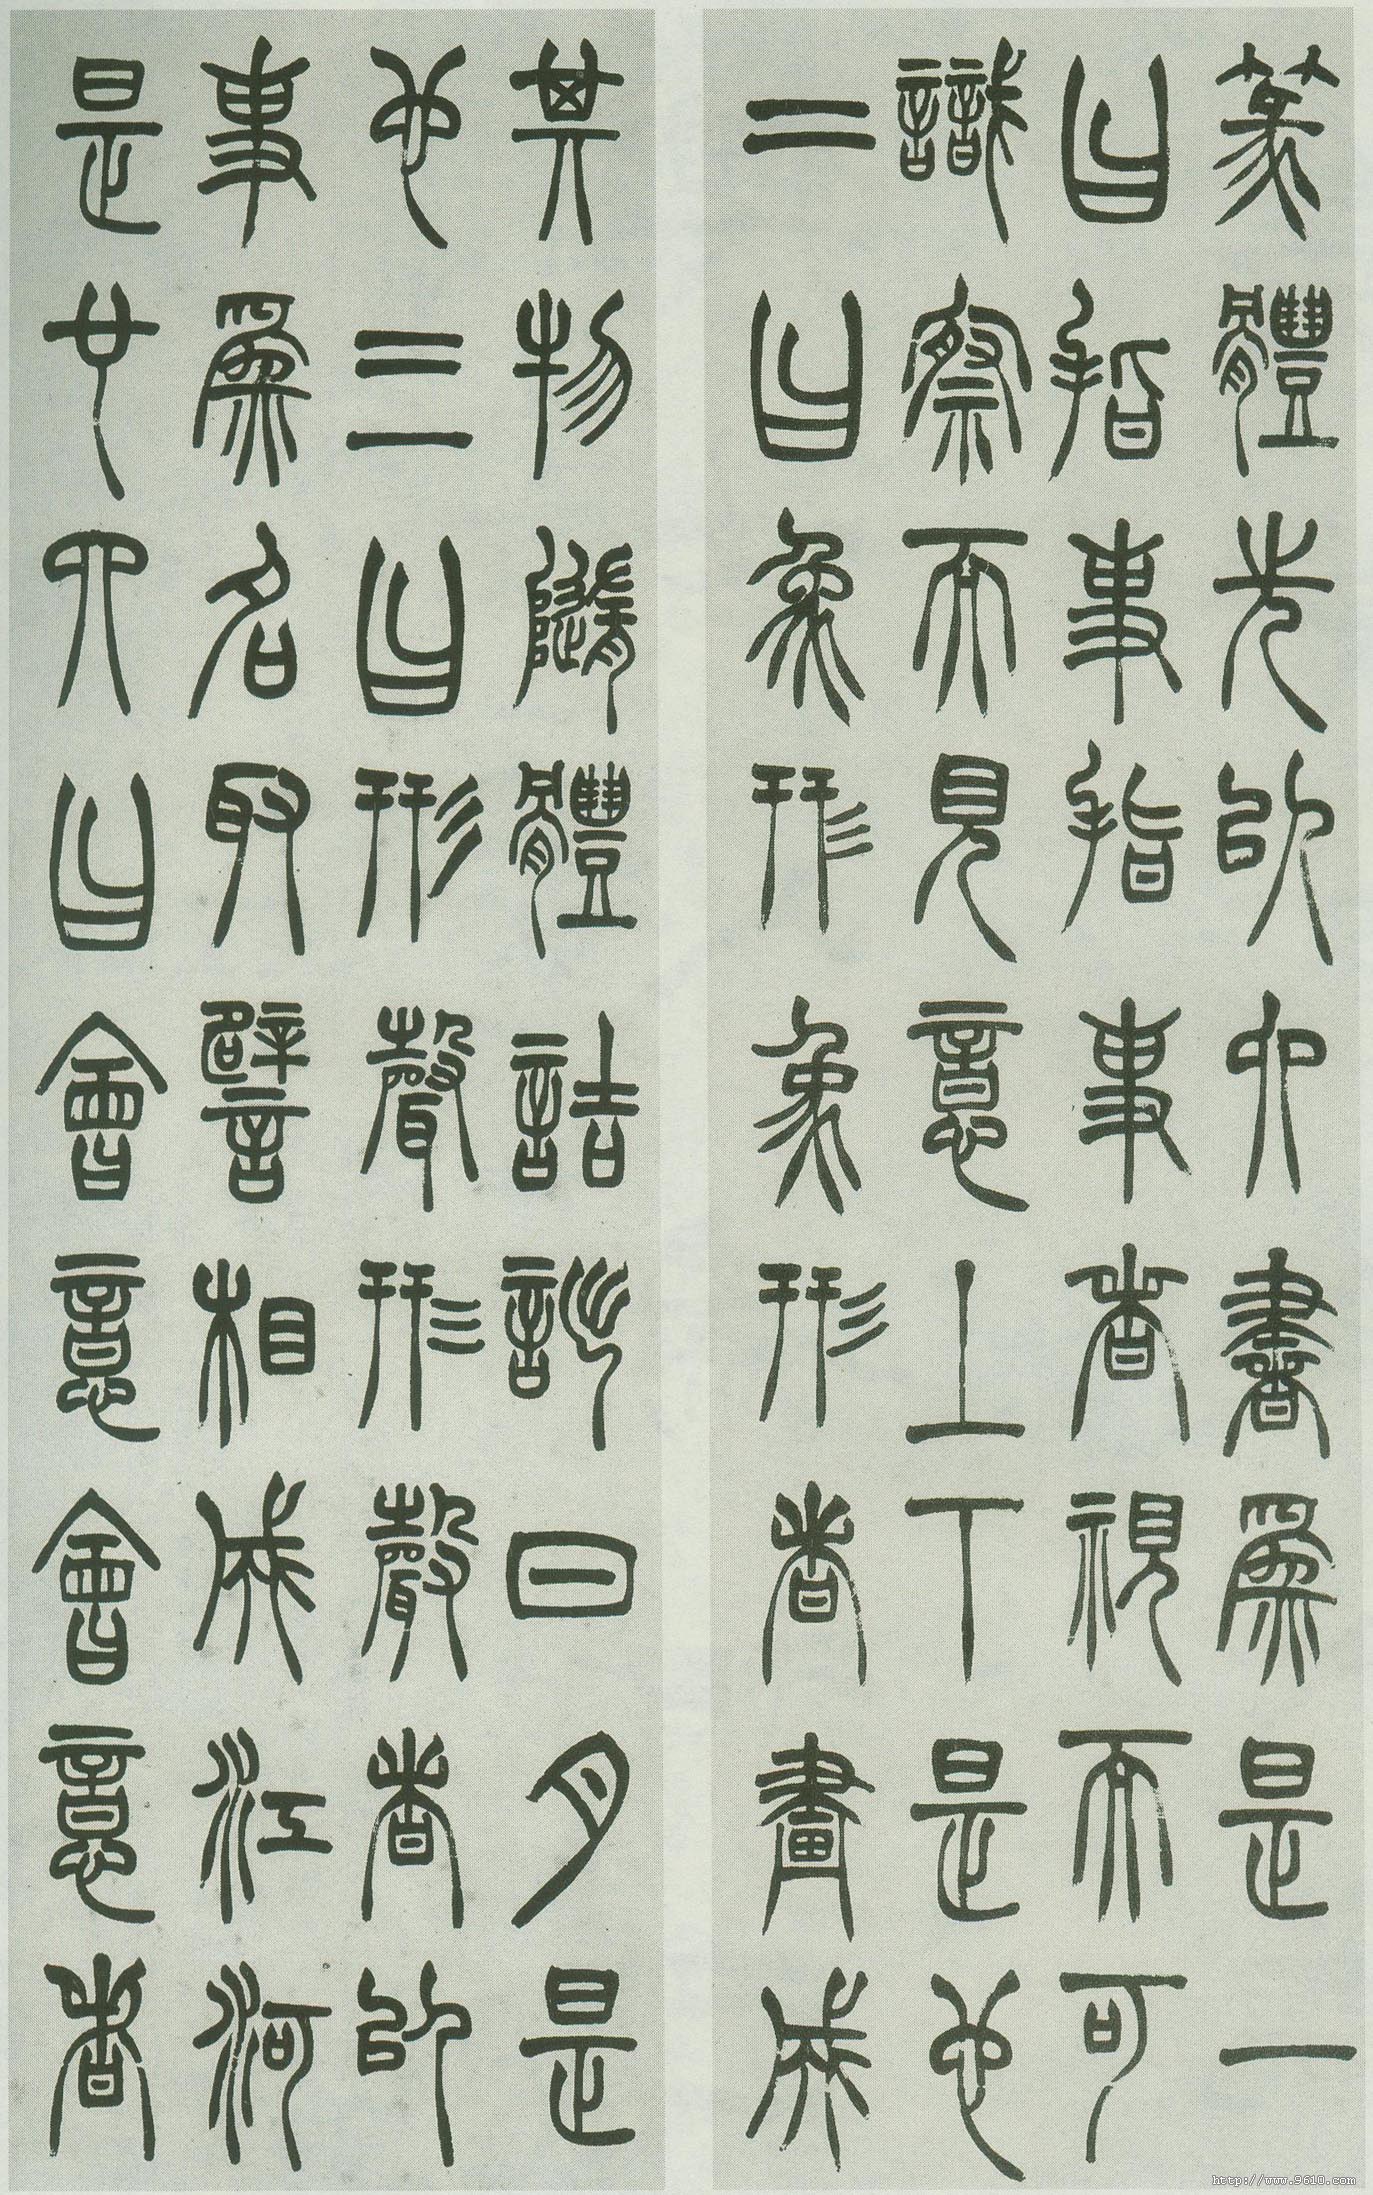 篆體先以六書為是一
曰指事指事者視而可
識察而見意上下是也
二曰象形象形者畫成
其物隨體詰詘日月是
也三曰形聲形聲者以
事為名取譬相成江河
是也四曰會意會意者
http://www.9610.com